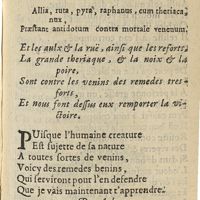 Allia, ruta, pyra, raphanus, cum theriaca
nux,
Præstant antidotum contra mortale venenum.
Et les aulx & la ruë, ainsi que les reforts,
La grande theriaque, & la noix & la
poire,
Sont contre les venins des remedes tres-
forts,
Et nous font dessus eux remporter la vi-
ctoire.
PUisque l'humaine creature
Est sujette de sa nature
A toutes sortes de venins,
Voicy des remedes benins,
Qui serviront pour l'en defendre
Que je vais maintenant t'apprendre.